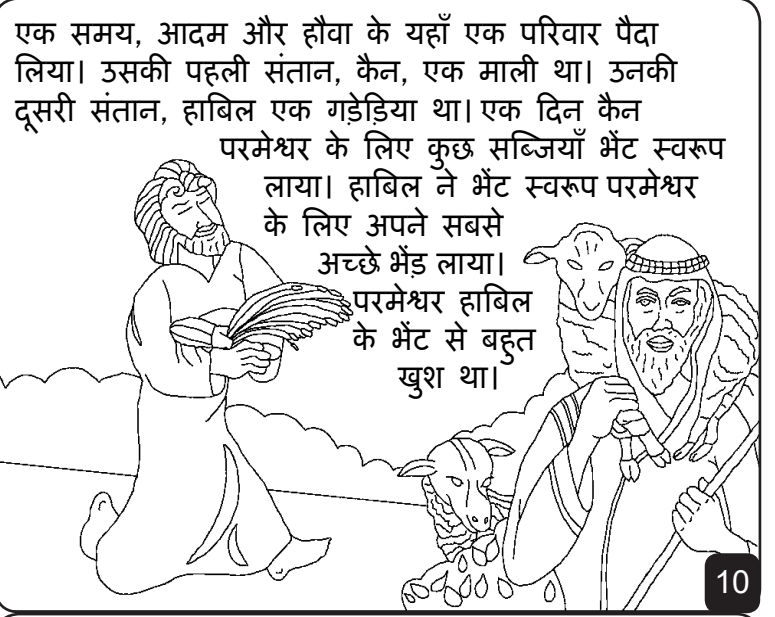 एक समय, आदम और हौवा के यहाँ एक परिवार पैदा
लिया। उसकी पहली संतान, कैन, एक माली था। उनकी
दूसरी संतान, हाबिल एक गड़ेड़िया था। एक दिन कैन
परमेश्वर के लिए कुछ सब्जियाँ भेंट स्वरूप
लाया। हाबिल ने भेंट स्वरूप परमेश्वर
के लिए अपने सबसे
अच्छे भेंड़ लाया।
परमेश्वर हाबिल
के भेंट से बहुत
खुश था।
10